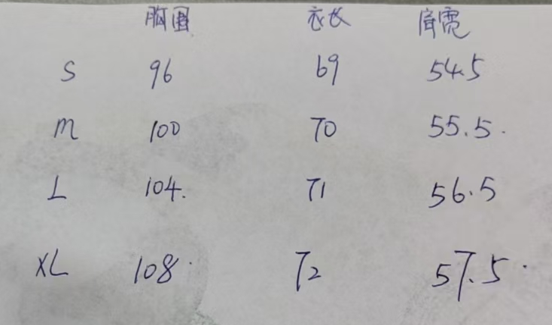 胸围 衣长 肩宽
S 96 69 54.5
M 100 70 55.5.
L 104. 71 56.5
XL 108. 72 57.5.